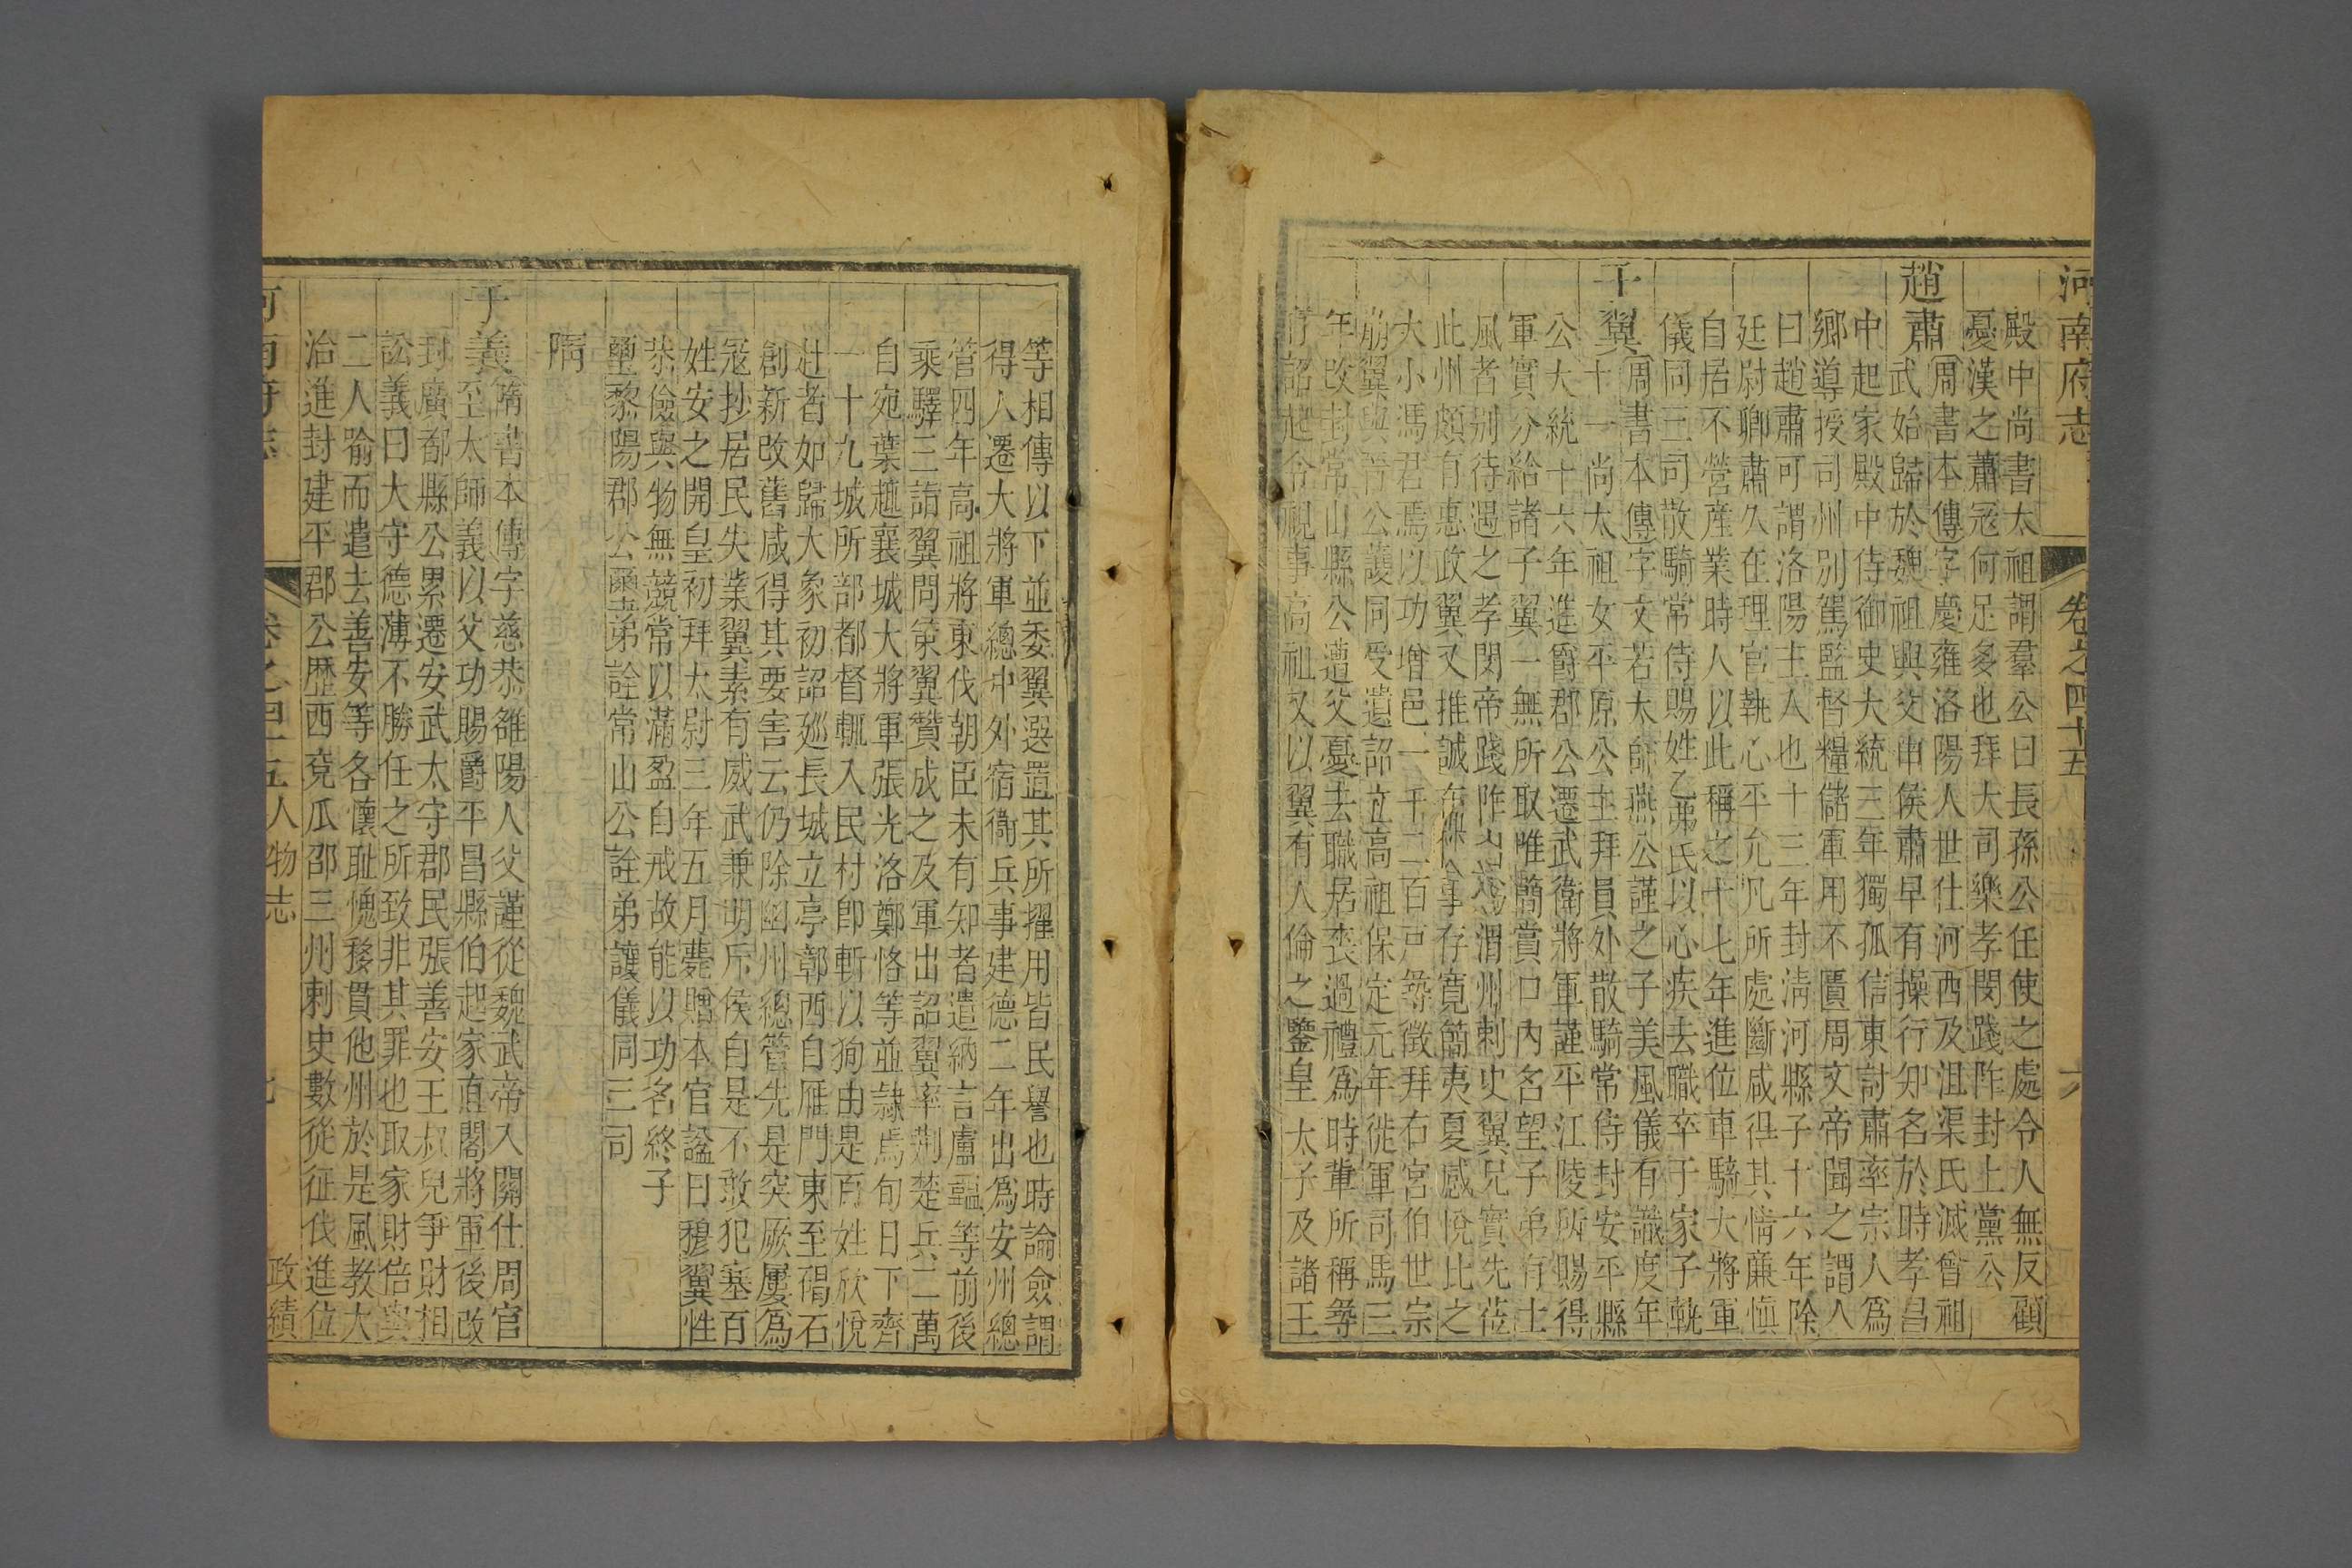 河南府志
卷之四十五
六
殿中尚書太祖謂羣公曰長孫公任使之處令人無反顧
憂漢之蕭冦何足多也拜大司樂孝閔踐阼封上黨公
趙肅周書本傳字慶雍洛陽人世仕河西及沮渠氏滅曾祖
武始歸於魏祖興父申侯肅早有操行知名於時孝昌
中起家殿中侍御史大統三年獨孤信東討肅率宗人爲
鄉導授司州別駕監督糧儲軍用不匱周文帝聞之謂人
曰趙肅可謂洛陽主人也十三年封清河縣子十六年除
廷尉卿肅久在理官執心平允凡所處斷咸得其情廉慎
自居不營産業時人以此稱之十七年進位車騎大將軍
儀同三司散騎常侍賜姓乙弗氏以心疾去職卒于家子軌
于翼周書本傳字文若太師燕公謹之子美風儀有識度年
十一尚太祖女平原公主拜員外散騎常侍封安平縣
公大統十六年進爵郡公遷武衛將軍謹平江陵所賜得
軍實分給諸子翼一無所取唯簡賞口內名望子弟有士
風者别待遇之孝閔帝踐阼出爲渭州刺史翼兄實先莅
此州頗有惠政翼又推誠布信事存寛簡夷夏感悅比之
大小馮君焉以功增邑一千二百戸尋徵拜右宮伯世宗
崩翼與晉公護同受遺詔立高祖保定元年徙軍司馬三
年改封常山縣公遭父憂去職居喪過禮爲時輩所稱尋
有詔起令視事高祖又以翼有人倫之鑒皇太子及諸王
等相傳以下並委翼選置其所擢用皆民譽也時論僉謂
得人遷大將軍總中外宿衞兵事建德二年出爲安州總
管四年高祖將東伐朝臣未有知者遣納言盧韞等前後
乘驛三詣翼問策翼贊成之及軍出詔翼率荆楚兵二萬
自宛葉趣襄城大將軍張光洛鄭恪等並隷焉旬日下齊
一十九城所部都督輒入民村卽斬以狥由是百姓欣悅
赴者如歸大象初詔廵長城立亭鄣西自雁門東至碣石
創新改舊咸得其要害云仍除幽州總管先是突厥屢爲
冦抄居民失業翼素有威武兼明斥候自是不敢犯塞百
姓安之開皇初拜太尉三年五月薨贈本官諡曰穆翼性
恭儉與物無競常以滿盈自戒故能以功名終子
璽黎陽郡公璽弟詮常山公詮弟讓儀同三司
隋
于義隋書本傳字慈恭雒陽人父謹從魏武帝入關仕周官
至太師義以父功賜爵平昌縣伯起家直閣將軍後改
封廣都縣公累遷安武太守郡民張善安王叔兒爭財相
訟義曰太守德薄不勝任之所致非其罪也取家財倍與
二人諭而遣去善安等各懷耻愧移貫他州於是風教大
治進封建平郡公歷西兗瓜邵三州刺史數從征伐進位
河南府志
卷之四十五人物志
政績